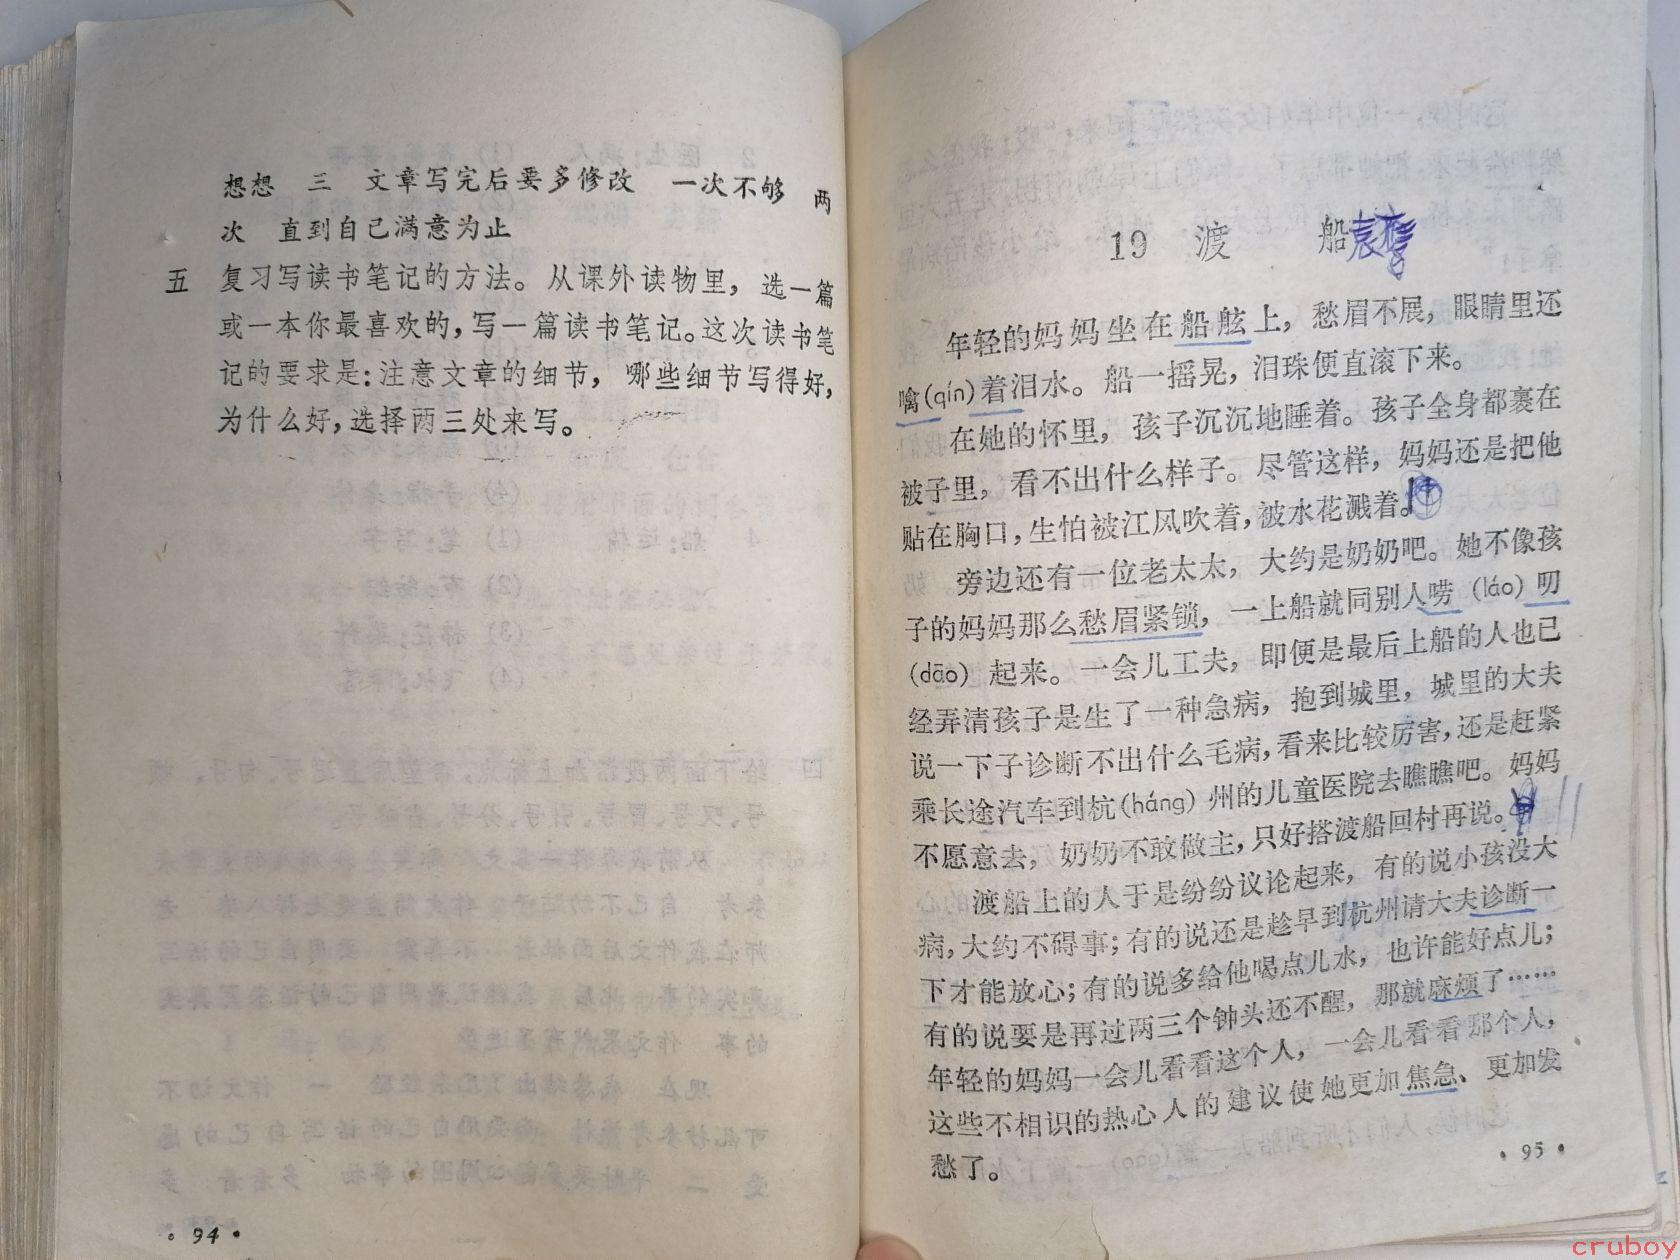 想想　三　文章写完后要多修改　一次不够　两
次　直到自己满意为止
五　复习写读书笔记的方法。从课外读物里，选一篇
或一本你最喜欢的，写一篇读书笔记。这次读书笔
记的要求是：注意文章的细节，哪些细节写得好，
为什么好，选择两三处来写。
·94·
19　渡　船
年轻的妈妈坐在船舷上，愁眉不展，眼睛里还
噙(qín)着泪水。船一摇晃，泪珠便直滚下来。
在她的怀里，孩子沉沉地睡着。孩子全身都裹在
被子里，看不出什么样子。尽管这样，妈妈还是把他
贴在胸口，生怕被江风吹着，被水花溅着。
旁边还有一位老太太，大约是奶奶吧。她不像孩
子的妈妈那么愁眉紧锁，一上船就同别人唠(láo)叨
(dāo)起来。一会儿工夫，即便是最后上船的人也已
经弄清孩子是生了一种急病，抱到城里，城里的大夫
说一下子诊断不出什么毛病，看来比较厉害，还是赶紧
乘长途汽车到杭(háng)州的儿童医院去瞧瞧吧。妈妈
不愿意去，奶奶不敢做主，只好搭渡船回村再说。
渡船上的人于是纷纷议论起来，有的说小孩没大
病，大约不碍事；有的说还是趁早到杭州请大夫诊断一
下才能放心；有的说多给他喝点儿水，也许能好点儿；
有的说要是再过两三个钟头还不醒，那就麻烦了……
年轻的妈妈一会儿看看这个人，一会儿看看那个人，
这些不相识的热心人的建议使她更加焦急、更加发
愁了。
·95·
cruboy